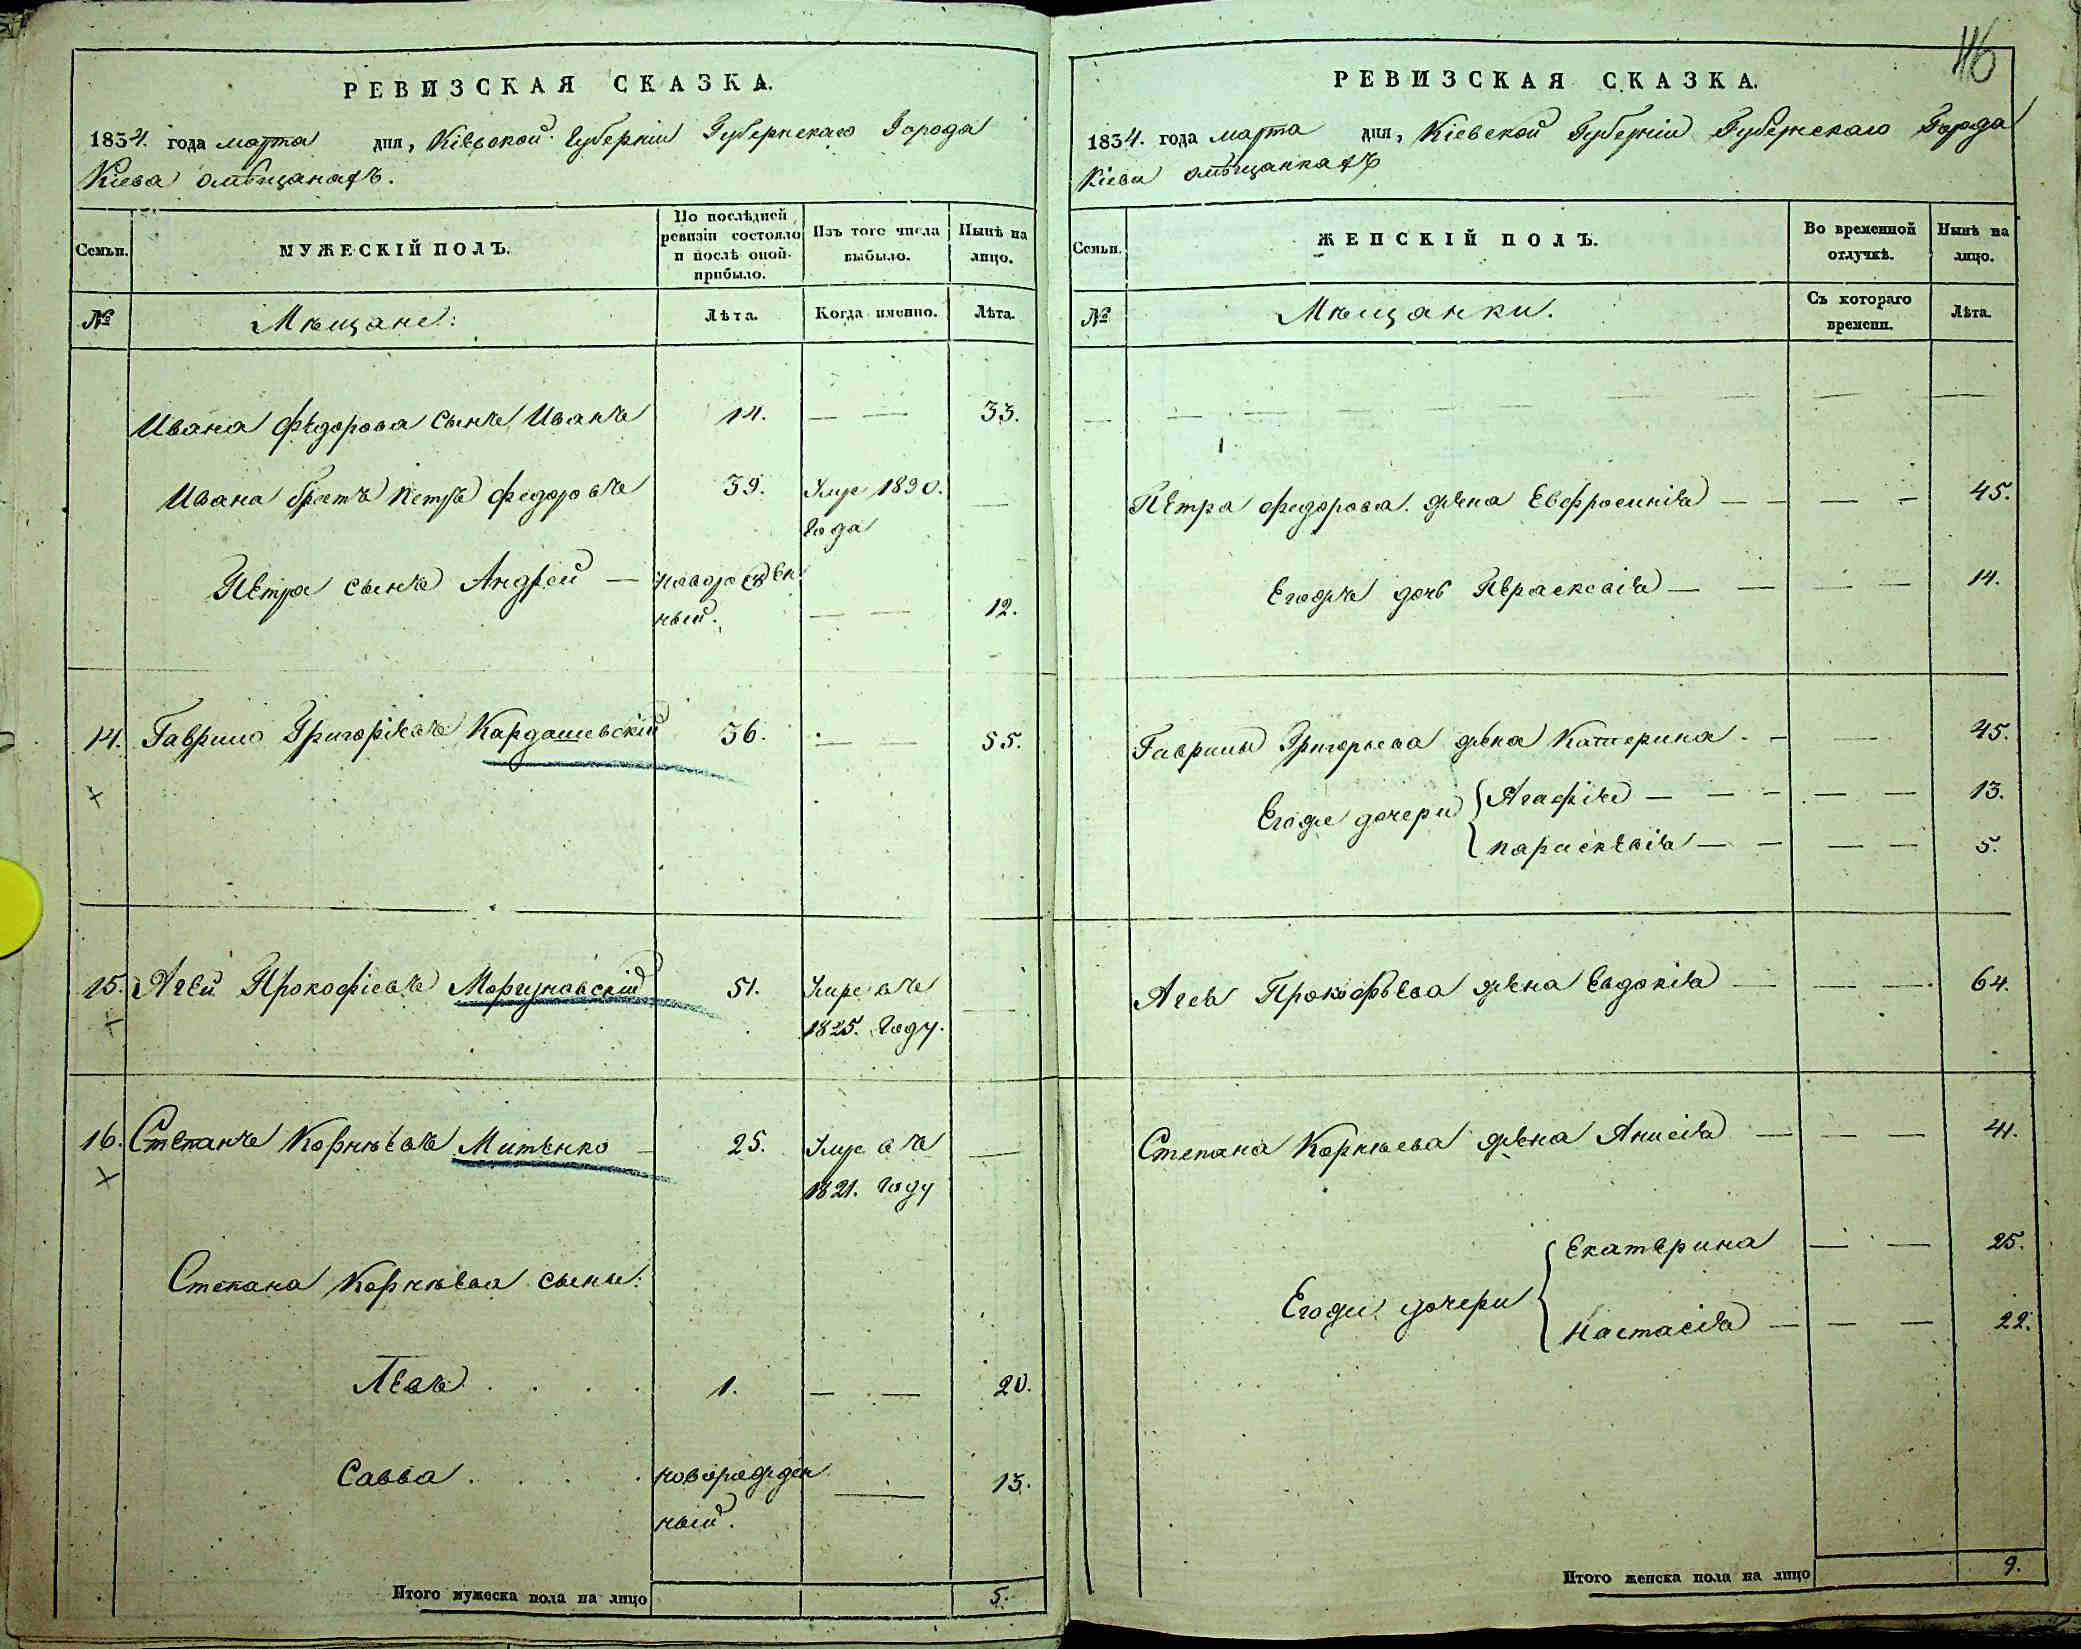 РЕВИЗСКАЯ СКАЗКА.
1834. года марта дня, Кіевской Губерніи Губернскаго Города
Кіева омѣщанахъ.
Семьи.
МУЖЕСКІЙ ПОЛЪ.
По послѣдней
ревизіи состояло
и послѣ оной
прибыло.
Изъ того числа
выбыло.
Нынѣ на
лицо.
№
Мѣщане:
Лѣта.
Когда именно.
Лѣта.
Ивана Федорова сынъ Иванъ 14. — — 33.
Ивана братъ Петръ Федоровъ 39. Умре 1830. —
года
Петра сынъ Андрей — новорожден
ный. — — 12.
14. Гаврило Григоріевъ Кардашевскій 36. — — 55.
15. Агей Прокофіевъ Моргуновскій 51. Умре въ —
1825. году.
16. Степанъ Корнѣевъ Митенко — 25. Умре въ —
1821. году
Степана Корнѣева сыны:
Левъ . . . . 1. — — 20.
Савва . . . . новорожден — 13.
ный.
Итого мужеска пола на лицо 5.
46
РЕВИЗСКАЯ СКАЗКА.
1834. года марта дня, Кіевской Губерніи Губернскаго Города
Кіева омѣщанкахъ
Семьи.
ЖЕНСКІЙ ПОЛЪ.
Во временной
отлучкѣ.
Нынѣ на
лицо.
№
Мѣщанки.
Съ котораго
времени.
Лѣта.
Петра Федорова жена Евфросинія — — — — 45.
Егожъ дочь Параскевія — — — — 14.
Гаврилы Григорьева жена Катерина. — — 45.
Егоже дочери { Агафія — — — — — 13.
Параскевія — — — — 5.
Агея Прокофьева жена Евдокія — — — — 64.
Степана Корнѣева жена Анисія — — — 41.
Егоже дочери { Екатерина — — 25.
Настасія — — — 22.
Итого женска пола на лицо 9.